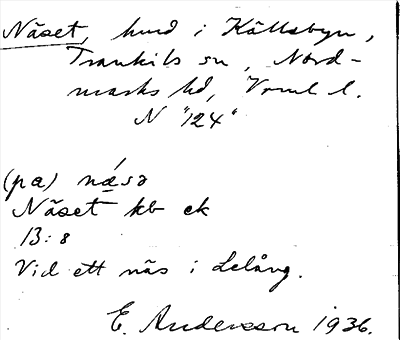 Näset, hmd i Källsbyn,
Trankils sn, Nord-
marks hd, Vrml l.
N "124"
(pa) nǽsə
Näset kb ek
13:8
Vid ett näs i Lelång.
E. Andersson 1936.